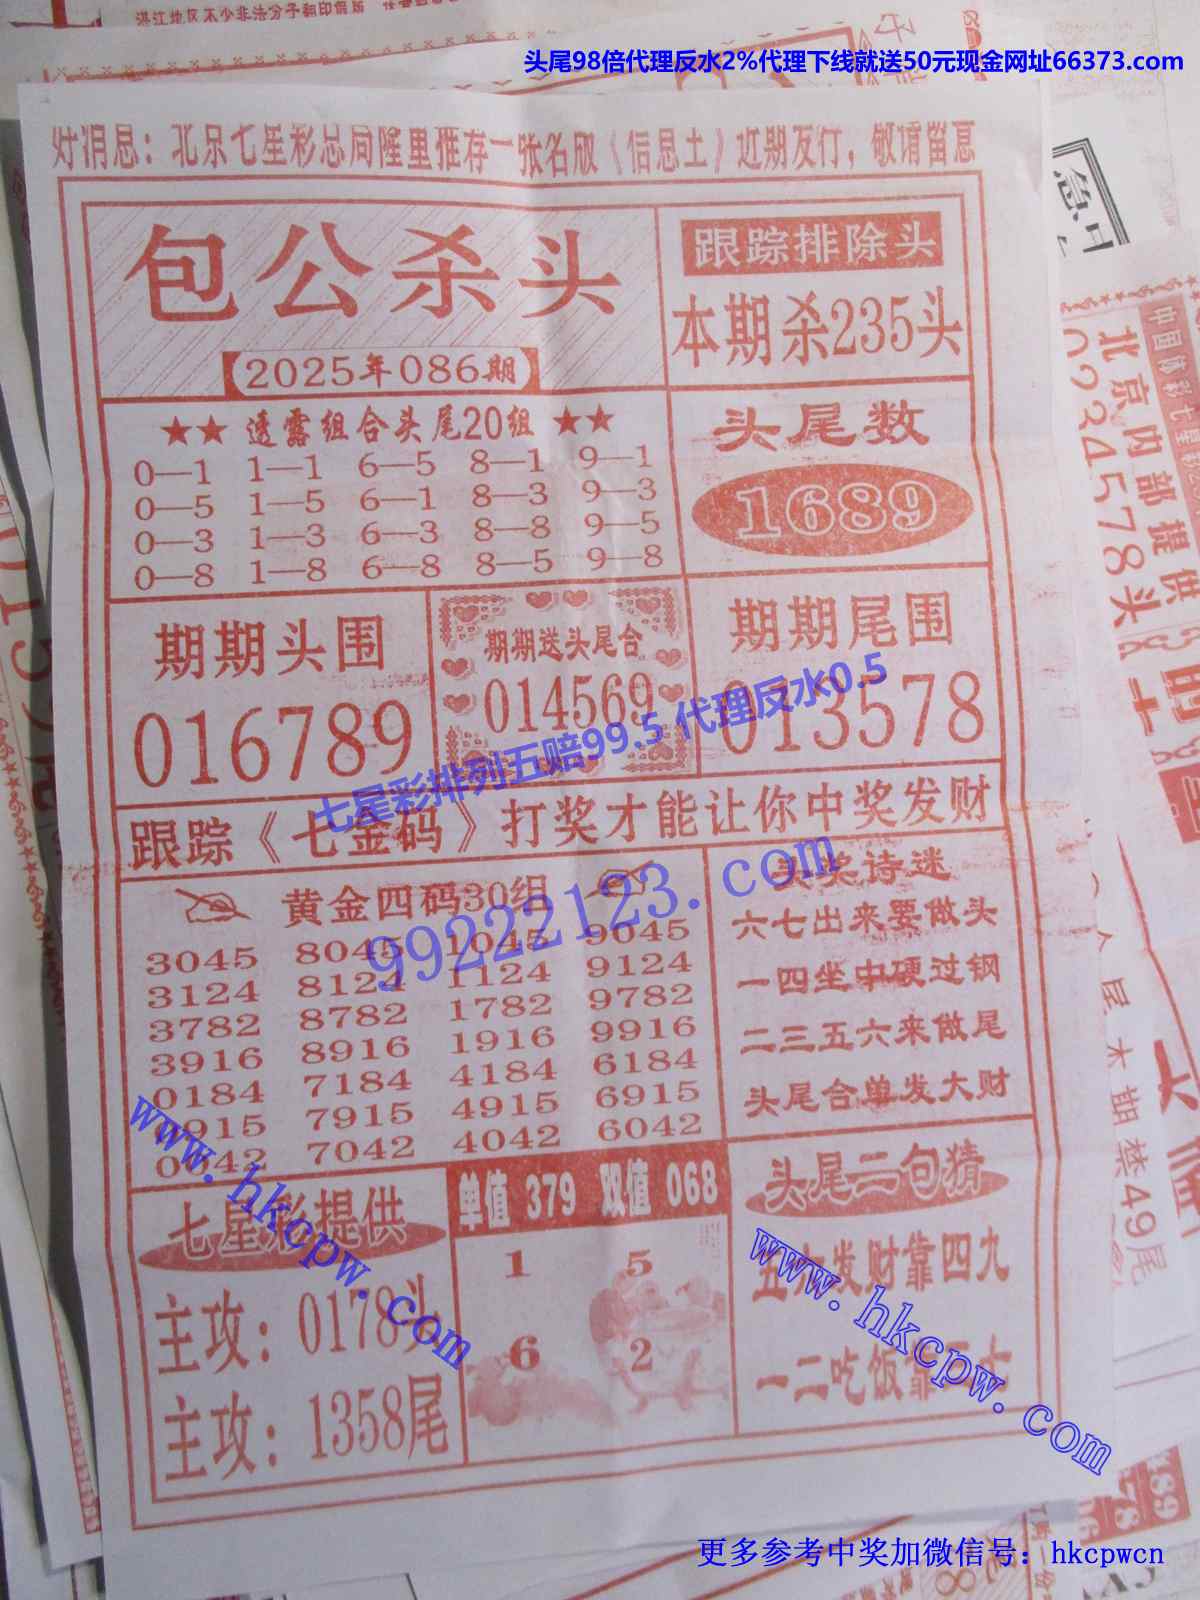 湛江地区不少非法分子翻印假版
头尾98倍代理反水2%代理下线就送50元现金网址66373.com
好消息：北京七星彩总局隆重推荐一张名版《信息士》近期发行，敬请留意
包公杀头
2025年086期
跟踪排除头
本期杀235头
★★ 透露组合头尾20组 ★★
0—1 1—1 6—5 8—1 9—1
0—5 1—5 6—1 8—3 9—3
0—3 1—3 6—3 8—8 9—5
0—8 1—8 6—8 8—5 9—8
头尾数
1689
期期头围
016789
期期送头尾合
014569
期期尾围
013578
七星彩排列五赔99.5 代理反水0.5
跟踪《七金码》打奖才能让你中奖发财
黄金四码30组
3045 8045 1045 9045
3124 8124 1124 9124
3782 8782 1782 9782
3916 8916 1916 9916
0184 7184 4184 6184
0915 7915 4915 6915
0042 7042 4042 6042
99222123.com
头奖诗迷
六七出来要做头
一四坐中硬过钢
二三五六来做尾
头尾合单发大财
七星彩提供
主攻：0178头
主攻：1358尾
单值 379 双值 068
1 5
6 2
头尾二句猜
发财靠四九
一二吃饭靠
www.hkcpw.com
www.hkcpw.com
中国体彩七星彩
北京内部提供
0234578头
屋本期禁49尾
更多参考中奖加微信号：hkcpwcn